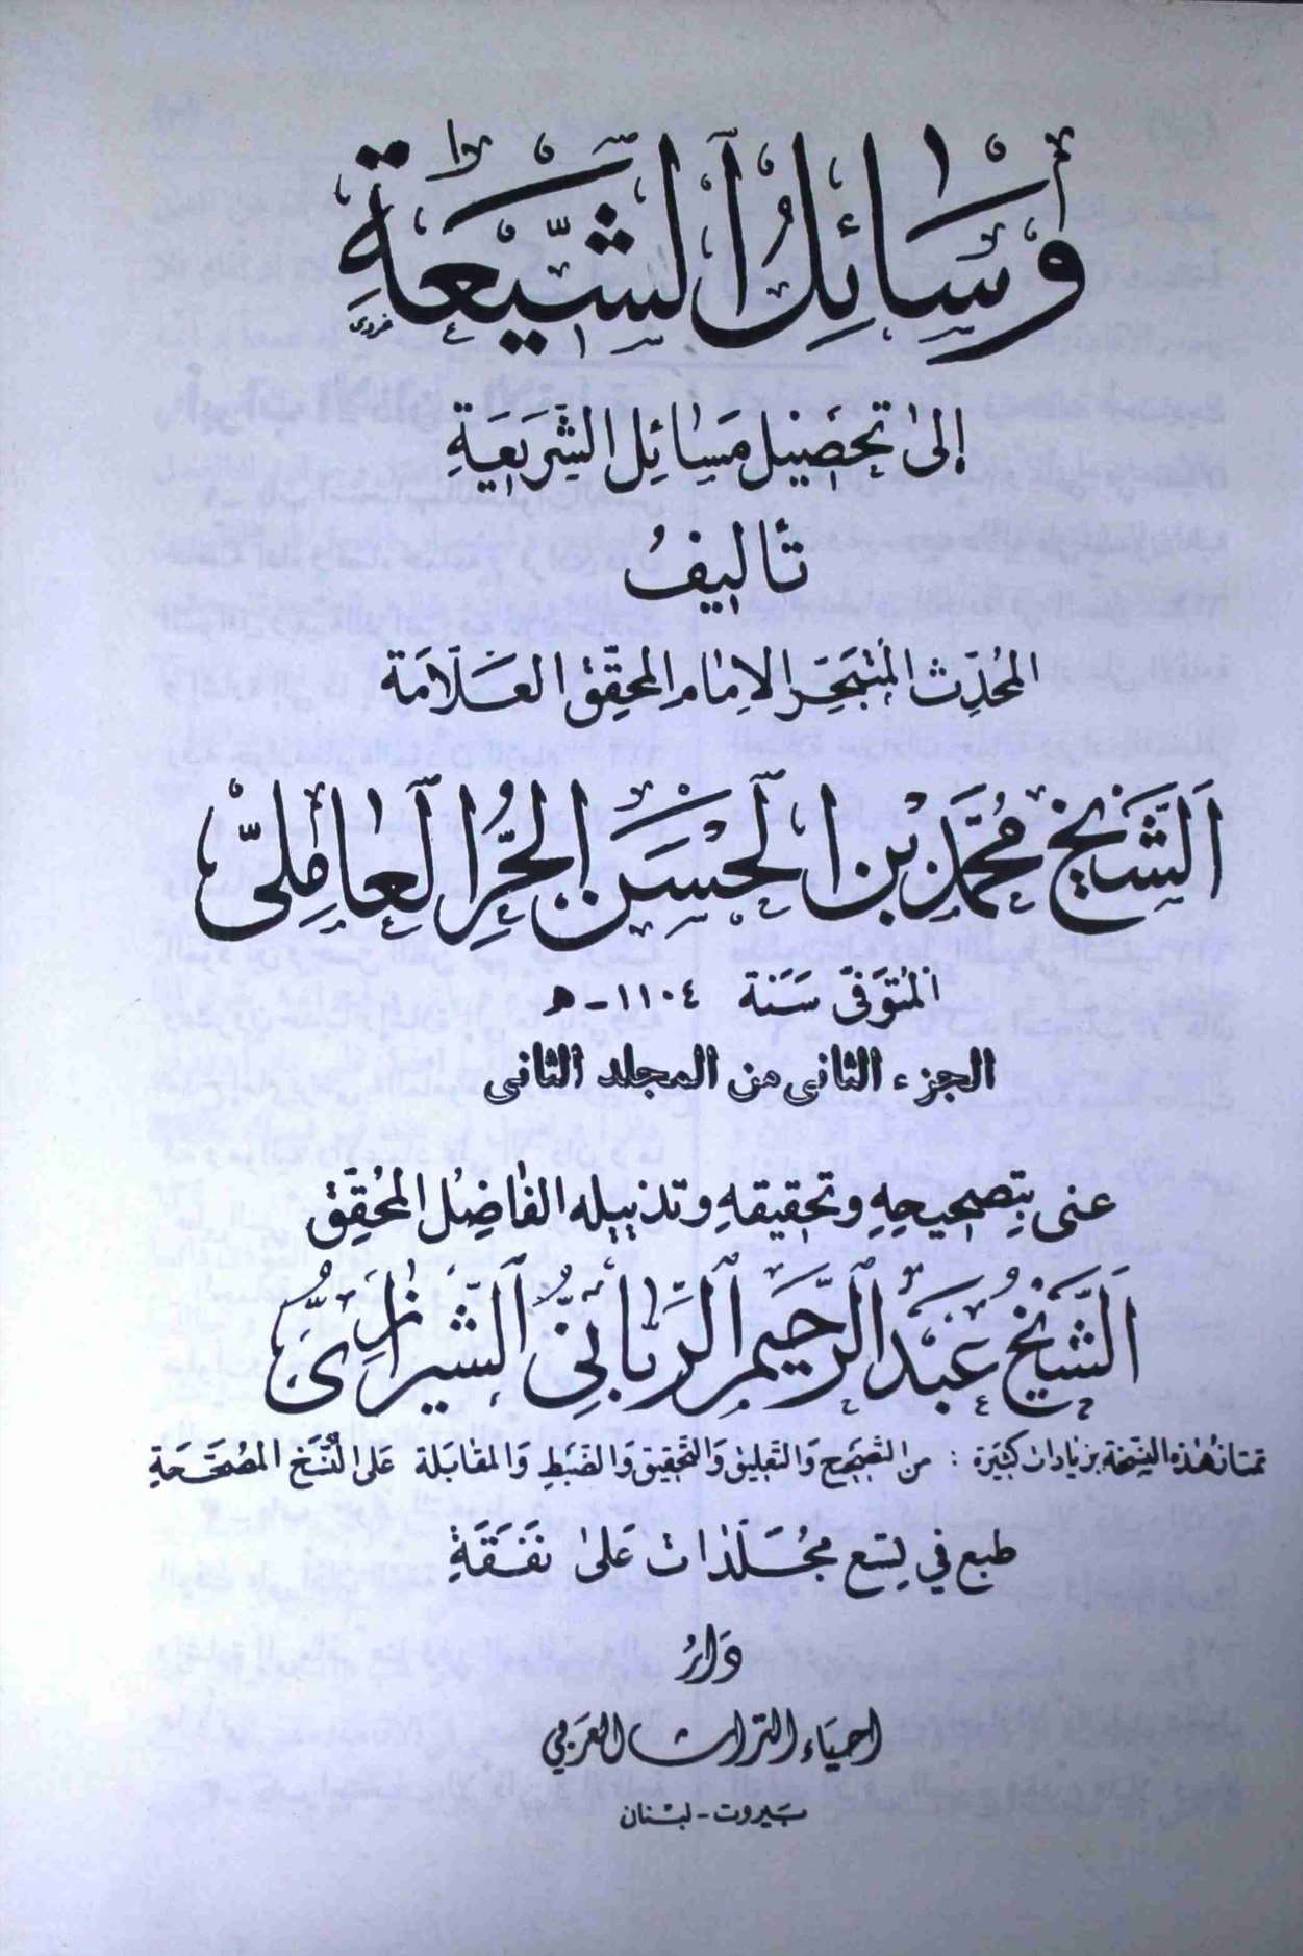 وَسَائِلُ الشِّيعَةِ
إلىٰ تحصيل مسائل الشريعة
تأليفُ
المحدّث المتبحّر الامام المحقّق العلّامة
الشَّيخ محمَّد بن الحسَن الحُرِّ العامِليّ
المتوفّى سَنَة ١١٠٤ - هـ
الجزء الثاني من المجلد الثاني
عنى بتصحيحه وتحقيقه وتذييله الفاضل المحقّق
الشَّيخ عَبد الرَّحيم الرَّبّاني الشّيرازيُّ
تمتاز هذه النسخة بزيادات كثيرة : من التصحيح والتعليق والتحقيق والضبط والمقابلة على النسخ المصحّحة
طبع في تسع مجلّدات على نفقة
دَارُ
احيَاء التراث العَرَبي
بَيروت - لبنان